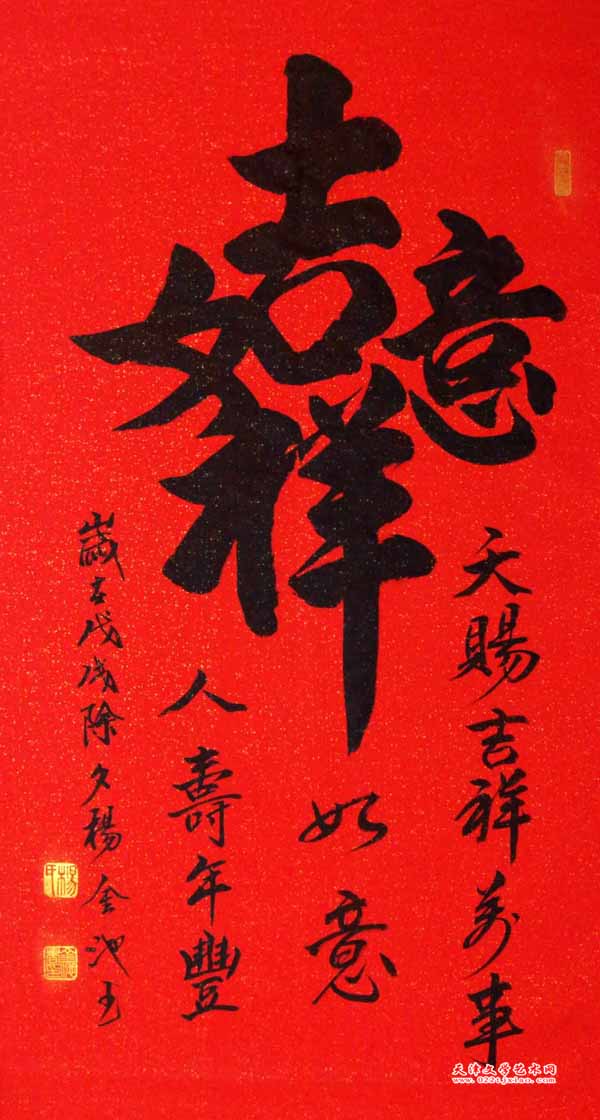 吉祥如意
天賜吉祥萬事
如意
人壽年豐
歲戊戌除夕楊金池
天津文学艺术网
www.022tjxiao.com